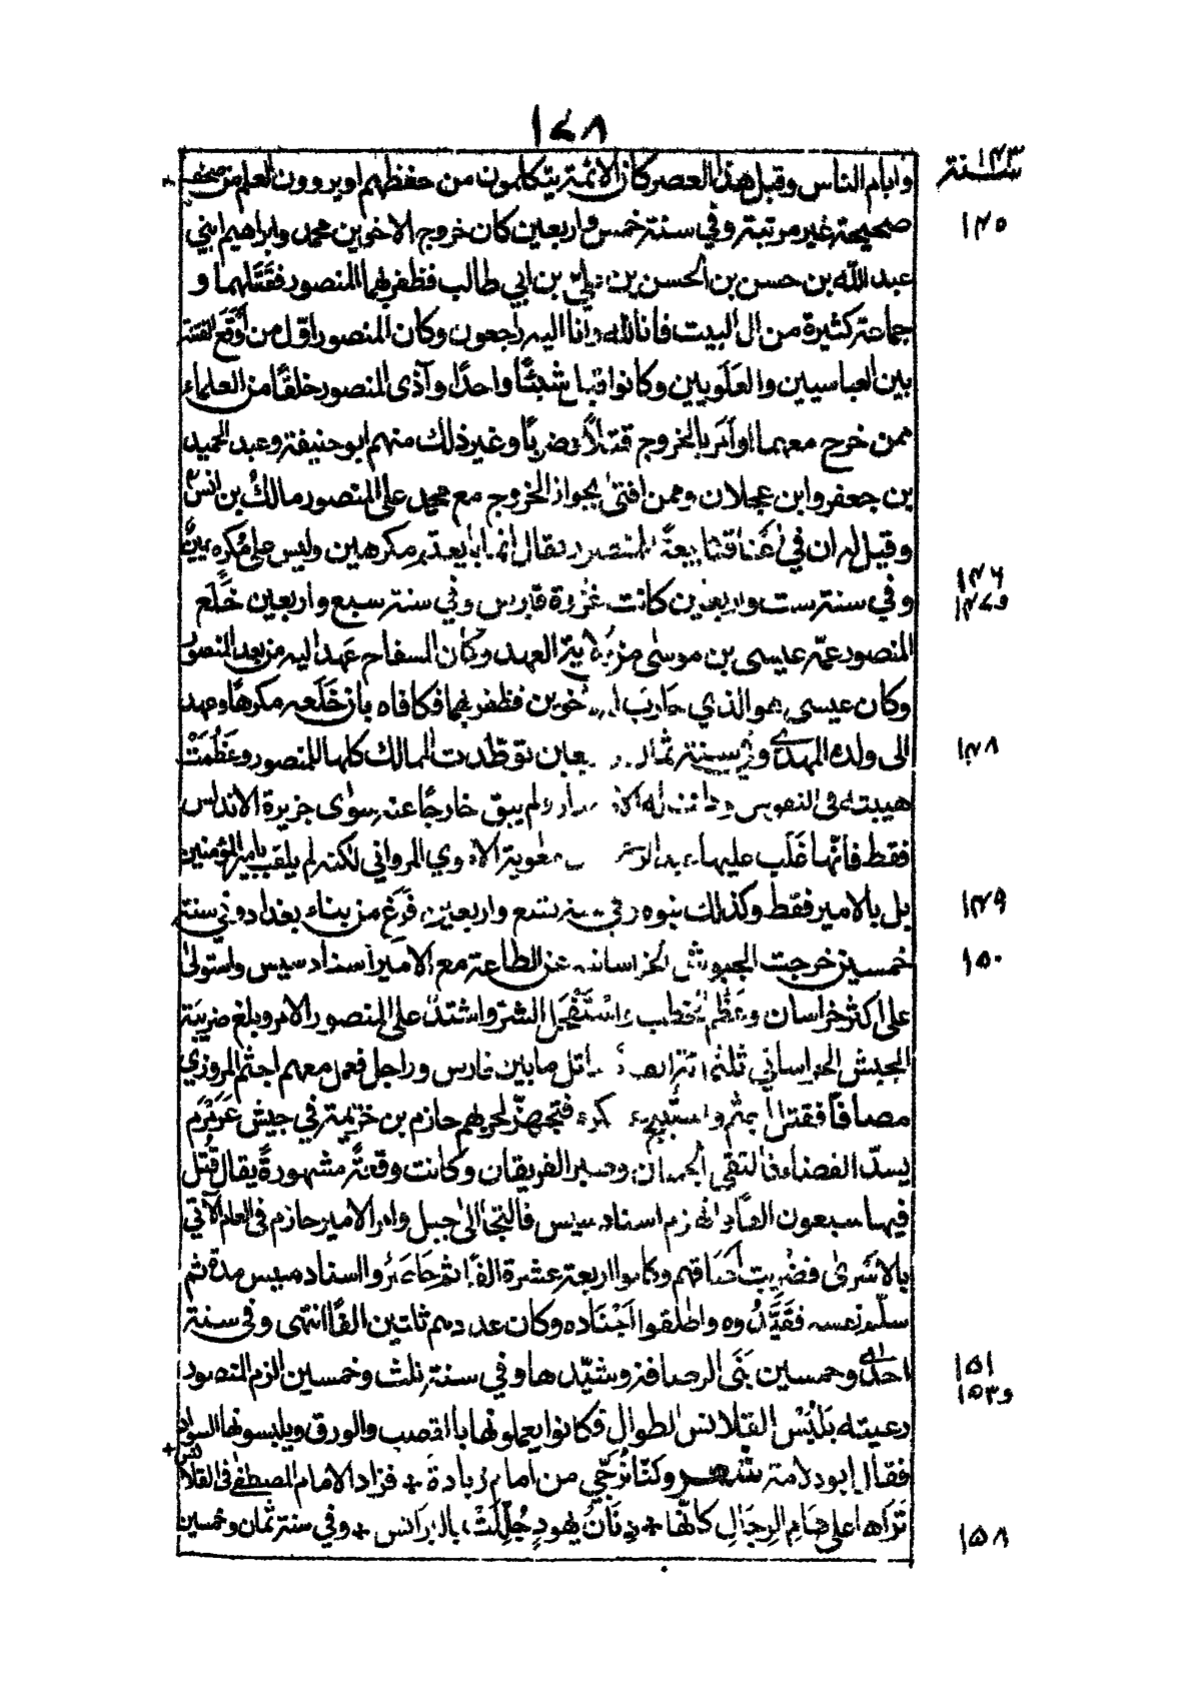 ١٧٨
وايام الناس وقبل هذا العصر كان الائمة يتكلمون من حفظهم او يروون العلم من صحف
سنة ١٤٣
صحيحة غير مرتبة وفي سنة خمس واربعين كان خروج الاخوين محمد وابراهيم ابني
١٤٥
عبد الله بن حسن بن الحسن بن علي بن ابي طالب فظفر بهما المنصور فقتلهما و
جماعة كثيرة من ال البيت فانا لله وانا اليه راجعون وكان المنصور اول من أوقع الفتنة
بين العباسيين والعَلَويين وكانوا قبل شيئًا واحدًا وآذى المنصور خلقًا من العلماء
ممن خرج معهما او أمر بالخروج قتلاً وضربًا وغير ذلك منهم ابو حنيفة وعبد الحميد
بن جعفر وابن عجلان وممن افتى بجواز الخروج مع محمد على المنصور مالك بن انس
وقيل له ان في أعناقنا بيعةً للمنصور فقال انما بايعتم مكرهين وليس على مكره يمين
وفي سنة ست واربعين كانت غزوة قبرس وفي سنة سبع واربعين خَلَع
١٤٦
و١٤٧
المنصور عمه عيسى بن موسى من ولاية العهد وكان السفاح عهد اليه من بعد المنصور
وكان عيسى هو الذي حارب الاخوين فظفر بهما فكافاه بان خَلَعه مكرهًا وعهد
الى ولده المهدي وفي سنة ثمان واربعين توطدت الممالك كلها للمنصور وعَظُمَتْ
١٤٨
هيبته في النفوس ودانت له الامصار ولم يبق خارجًا عنه سوى جزيرة الاندلس
فقط فانها غَلَب عليها عبد الرحمن بن معوية الاموي المرواني لكنه لم يلقب بامير المؤمنين
بل بالامير فقط وكذلك بنوه وفي سنة تسع واربعين فَرَغ من بناء بغداد وفي سنة
١٤٩
خمسين خرجت الجيوش الخراسانية عن الطاعة مع الامير استاد سيس واستولى
١٥٠
على أكثر خراسان وعظم الخطب واسْتَفْحَل الشر واشتد على المنصور الامر وبلغ ضريبة
الجيش الخراساني ثلثمائة الف مقاتل ما بين فارس وراجل فعمل معهم اجثم المروزي
مصافًا فقتل اجثم واستبيح عسكره فتجهز لحربهم حازم بن خزيمة في جيش عَرَمْرَم
يسدّ الفضاء فالتقى الجمعان وصبر الفريقان وكانت وقعةً مشهورةً يقال قُتل
فيها سبعون الفًا وانهزم استاد سيس فالتجا الى جبل وامر الامير حازم في العام الآتي
بالاسرى فضُرِبت أعناقهم وكانوا اربعة عشرة الفًا ثم حاصَرُوا استاد سيس مدة ثم
سلّم نفسه فقَيَّدُوه واطلقوا اَجْنَاده وكان عددهم ثلثين الفًا انتهى وفي سنة
احدى وخمسين بَنَى الرصافة وشيّدها وفي سنة ثلث وخمسين الزم المنصور
١٥١
و١٥٣
رعيته بَلُبْس القلانس الطوال فكانوا يعملونها بالقصب والورق ويلبسونها السواد
فقال ابو دلامة شعر وكنا نُرَجّي من امام زيادة + فزاد الامام المصطفى في القلانس +
تَرَاها على هَامِ الرِجَالِ كانّها + دِنَانُ يهودٍ جُلِّلَتْ بالبَرَانس + وفي سنة ثمان وخمسين
١٥٨